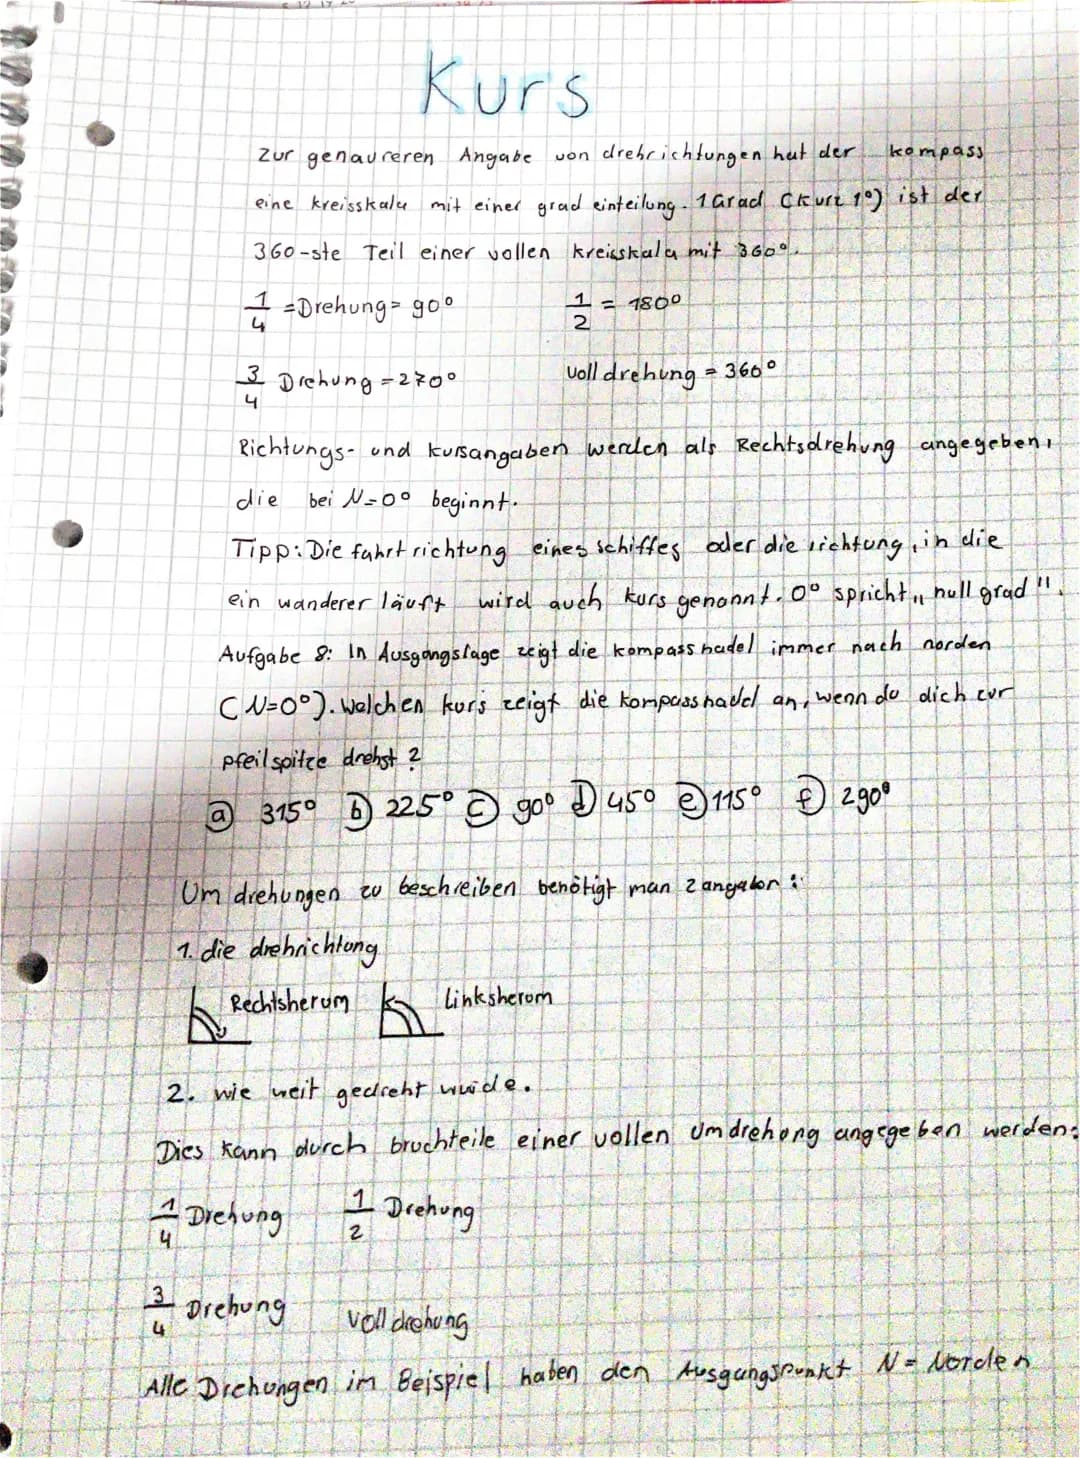 Kurs
Zur genaureren Angabe von drehrichtungen hat der kompass
eine kreisskala mit einer grad einteilung. 1 Grad (kurz 1°) ist der
360-ste Teil einer vollen kreisskala mit 360°.
1/4 =Drehung= 90° 1/2 = 180°
3/4 Drehung = 270° Volldrehung = 360°
Richtungs- und kursangaben werden als Rechtsdrehung angegeben,
die bei N=0° beginnt.
Tipp: Die fahrtrichtung eines schiffes oder die richtung, in die
ein wanderer läuft wird auch kurs genannt. 0° spricht „null grad".
Aufgabe 8: In Ausgangslage zeigt die kompassnadel immer nach norden
(N=0°). Welchen kurs zeigt die kompassnadel an, wenn du dich zur
pfeilspitze drehst?
a) 315° b) 225° c) 90° d) 45° e) 115° f) 290°
Um drehungen zu beschreiben benötigt man 2 angaben:
1. die drehrichtung
Rechtsherum Linksherum
2. wie weit gedreht wurde.
Dies kann durch bruchteile einer vollen Umdrehung angegeben werden:
1/4 Drehung 1/2 Drehung
3/4 Drehung Volldrehung
Alle Drehungen im Beispiel haben den Ausgangspunkt N = Norden